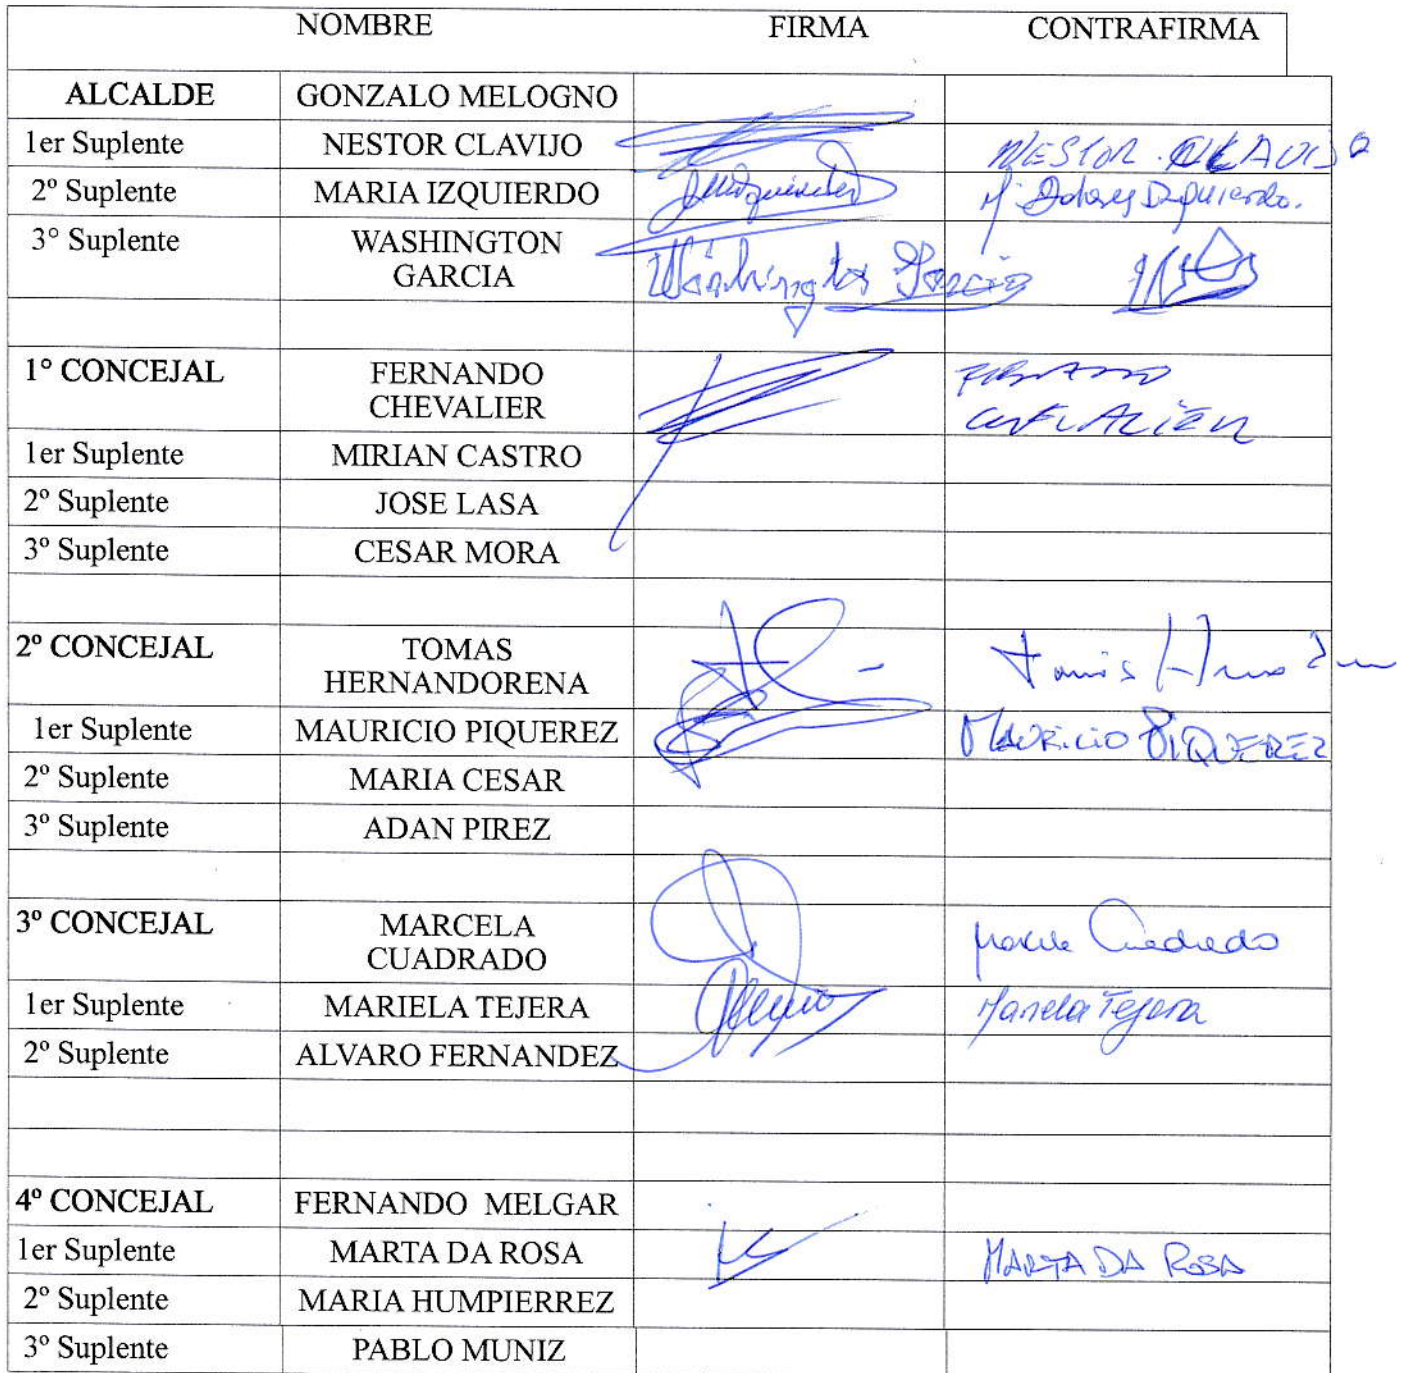 NOMBRE FIRMA CONTRAFIRMA
ALCALDE GONZALO MELOGNO
1er Suplente NESTOR CLAVIJO NESTOR CLAVIJO
2º Suplente MARIA IZQUIERDO Mª Dolores Izquierdo.
3° Suplente WASHINGTON
GARCIA Washington Garcia
1° CONCEJAL FERNANDO
CHEVALIER
1er Suplente MIRIAN CASTRO
2º Suplente JOSE LASA
3º Suplente CESAR MORA
2º CONCEJAL TOMAS
HERNANDORENA Tomás
1er Suplente MAURICIO PIQUEREZ MAURICIO PIQUEREZ
2º Suplente MARIA CESAR
3º Suplente ADAN PIREZ
3º CONCEJAL MARCELA
CUADRADO Marcela Cuadrado
1er Suplente MARIELA TEJERA Mariela Tejera
2º Suplente ALVARO FERNANDEZ
4º CONCEJAL FERNANDO MELGAR
1er Suplente MARTA DA ROSA MARTA DA ROSA
2º Suplente MARIA HUMPIERREZ
3º Suplente PABLO MUNIZ